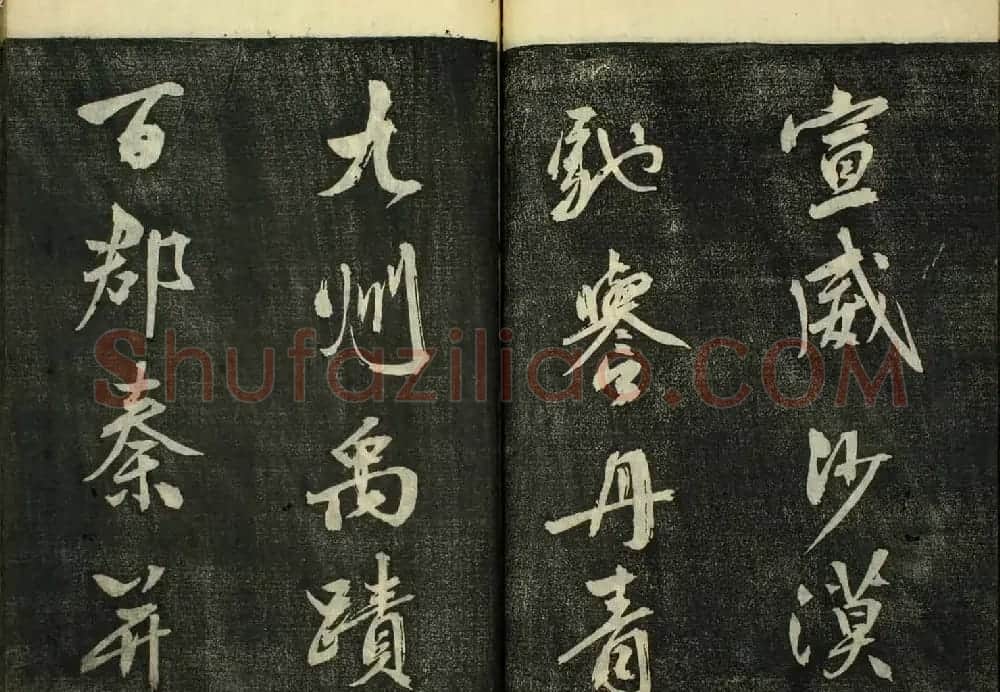 宣威沙漠
馳譽丹青
九州禹蹟
百郡秦并
Shufaziliao.COM